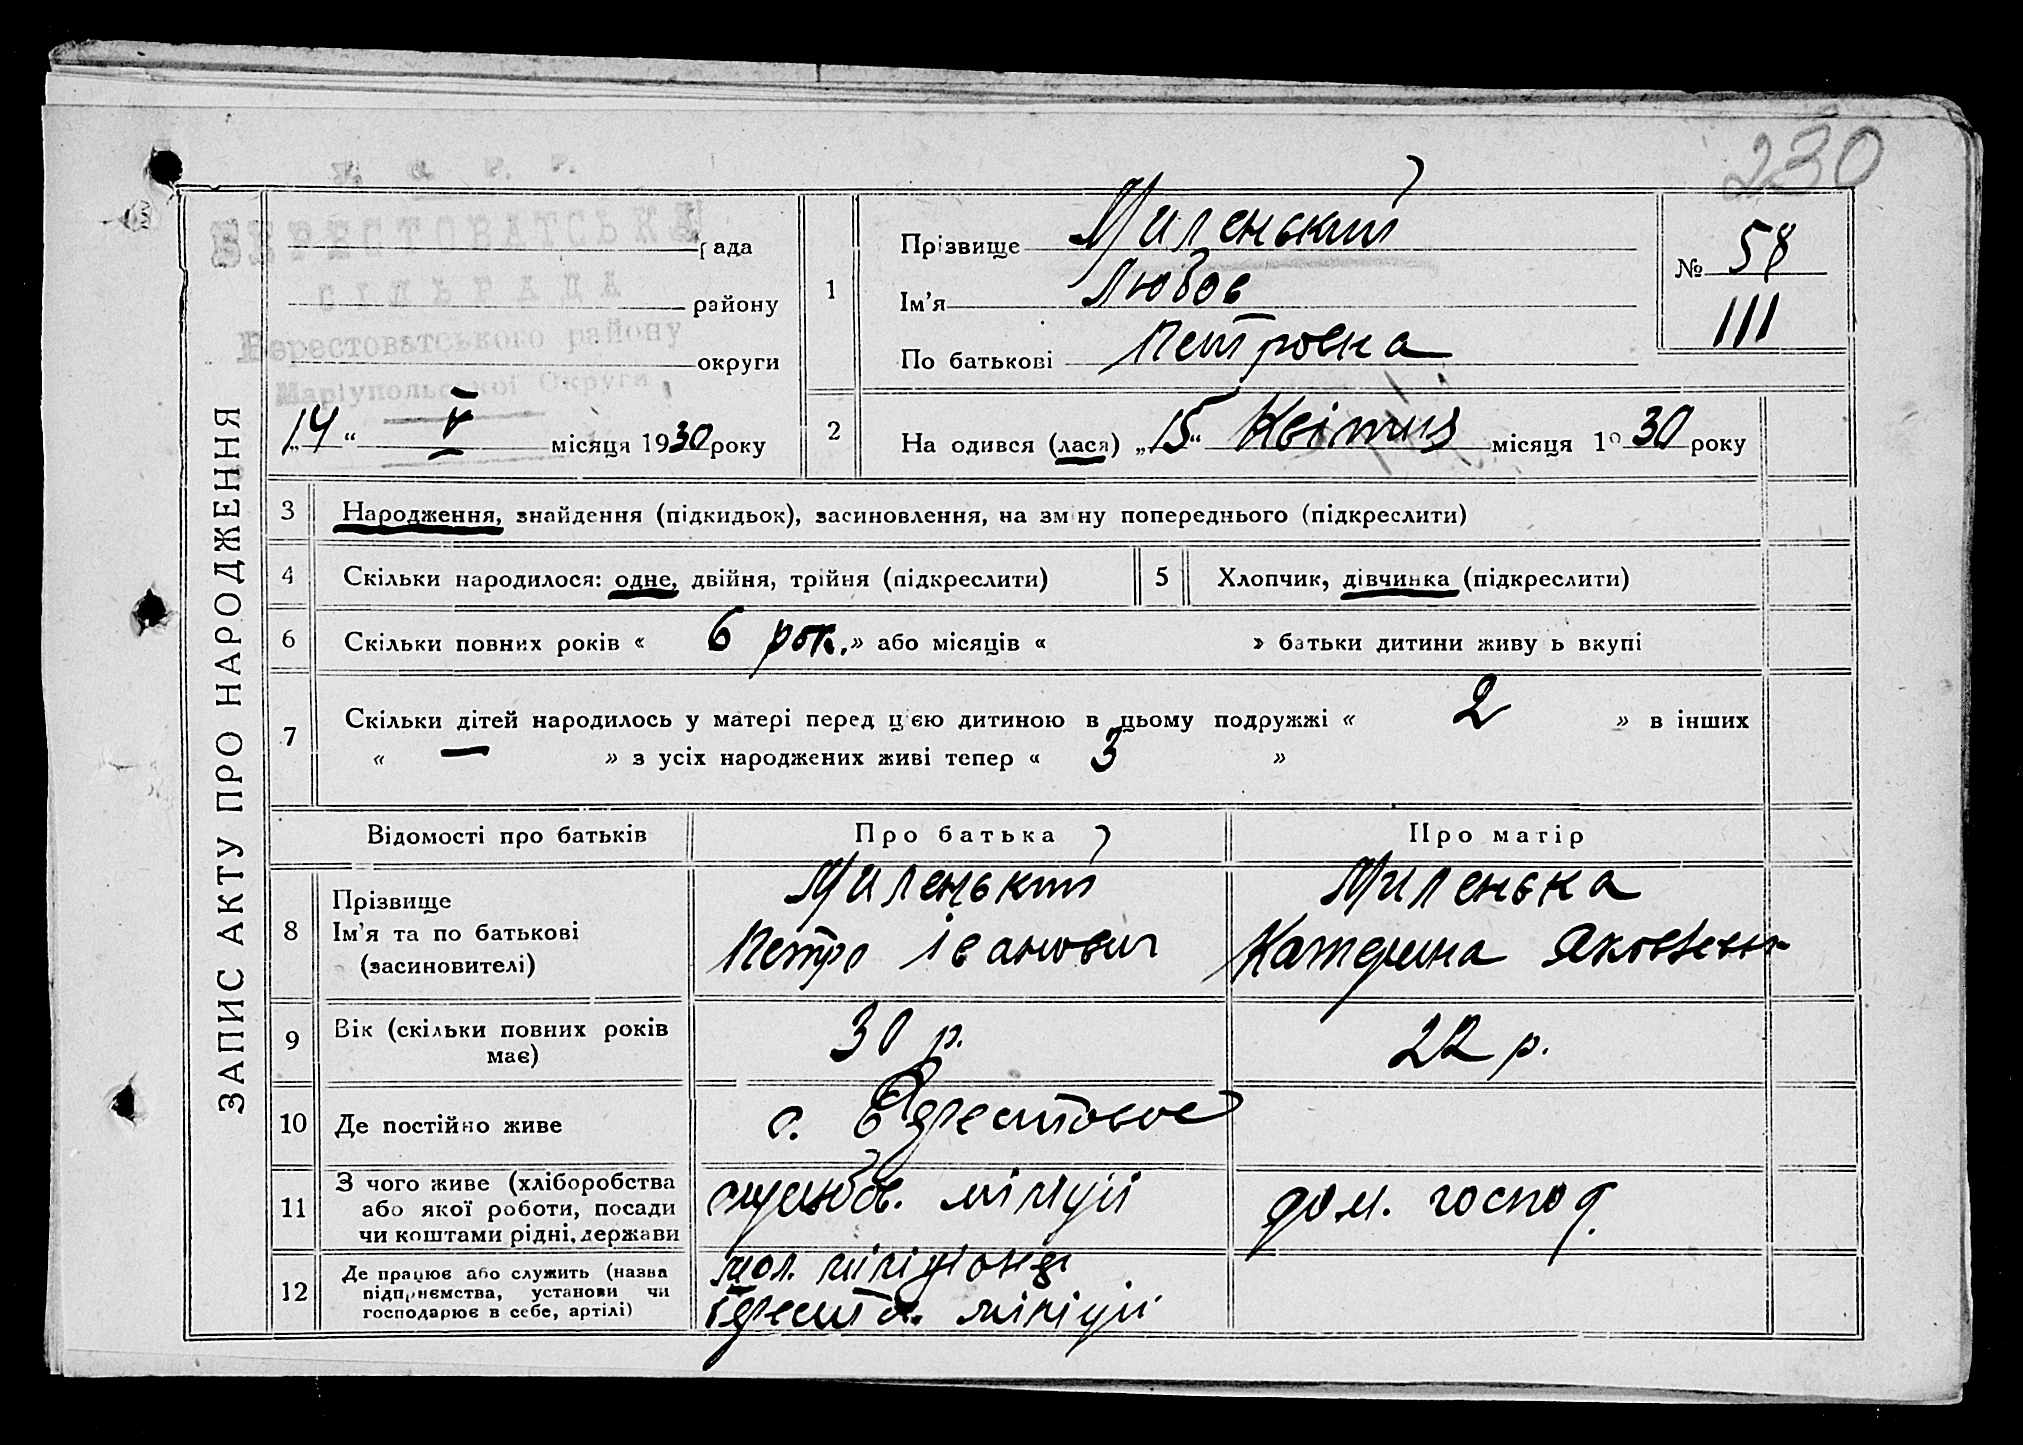 230
БЕРЕСТОВАТСЬКА рада
СІЛЬРАДА району
Берестоватського району
округи
Маріупольської Округи
„14“ V місяця 1930 року
ЗАПИС АКТУ ПРО НАРОДЖЕННЯ
1 Прізвище Миленький
Ім'я Любов
По батькові Петровна
№ 58
111
2 На одився (лася) „15“ Квітня місяця 19 30 року
3 Народження, знайдення (підкидьок), засиновлення, на зміну попереднього (підкреслити)
4 Скільки народилося: одне, двійня, трійня (підкреслити) 5 Хлопчик, дівчинка (підкреслити)
6 Скільки повних років « 6 рок. » або місяців « » батьки дитини живу ь вкупі
7 Скільки дітей народилось у матері перед цією дитиною в цьому подружжі « 2 » в інших
« — » з усіх народжених живі тепер « 3 »
Відомості про батьків Про батька Про матір
8 Прізвище Миленький Миленька
Ім'я та по батькові Петро Іванович Катерина
(засиновителі)
9 Вік (скільки повних років має) 30 р. 22 р.
10 Де постійно живе с. Берестовое
11 З чого живе (хліборобства або якої роботи, посади чи коштами рідні, держави міліції дом. господ.
12 Де працює або служить (назва підприємства, установи чи господарює в себе, артілі) міліції